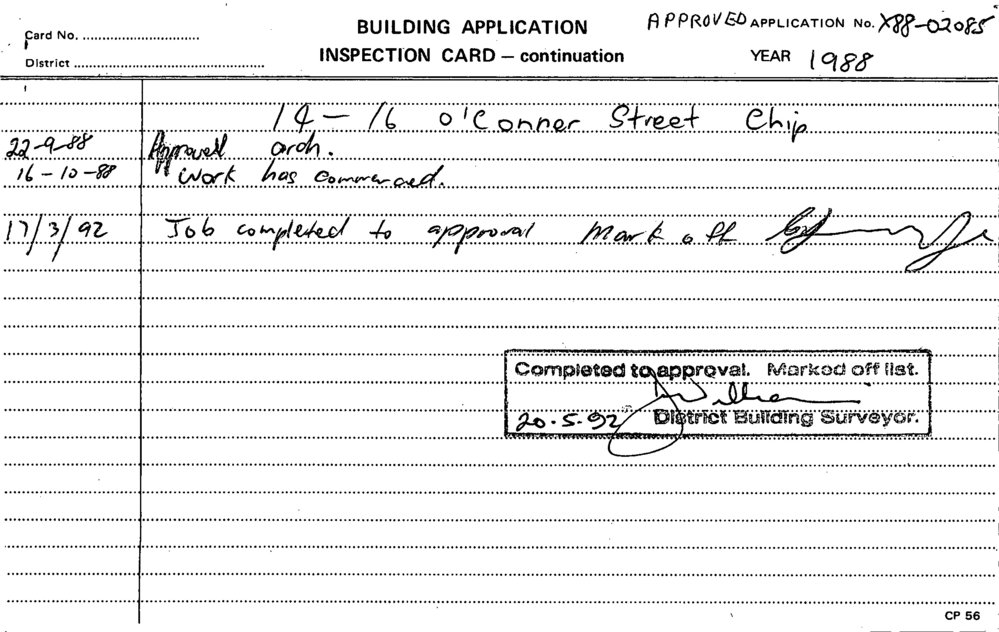 Card No.
BUILDING APPLICATION
APPROVED APPLICATION No. X88-02085
District
INSPECTION CARD – continuation
YEAR 1988
14 – 16 O'Conner Street Chip
22-9-88 Approved arch.
16-10-88 Work has commenced.
17/3/92 Job completed to approval Mark off
Completed to approval. Marked off list.
20.5.92 District Building Surveyor.
CP 56